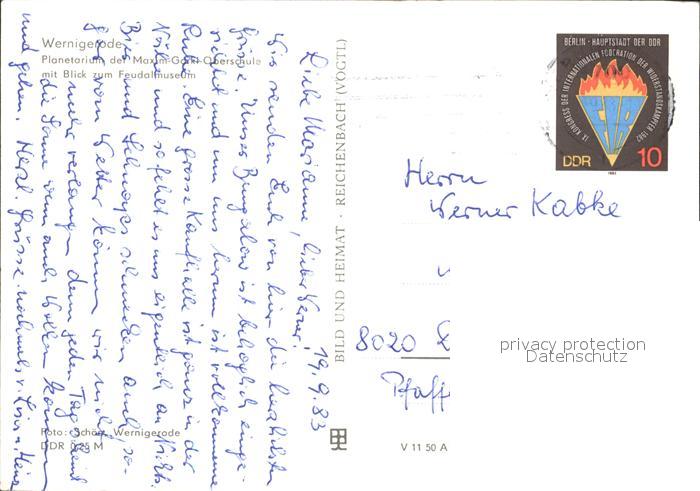 Wernigerode
Planetarium der Maxim-Gorki-Oberschule
mit Blick zum Feudalmuseum
Foto: Schön, Wernigerode
DDR 0,25 M
BILD UND HEIMAT · REICHENBACH (VOGTL)
V 11 50 A
BERLIN · HAUPTSTADT DER DDR
IX. KONGRESS DER INTERNATIONALEN FÖDERATION DER WIDERSTANDSKÄMPFER 1982
FIR
DDR 10
1982
19.9.83
Liebe Marianne, lieber Werner!
Wir senden Euch von hier die herzlichsten
Grüsse. Unser Bungalow ist behaglich einge-
richtet und um uns herum ist vollkommene
Ruhe. Eine grosse Kaufhalle ist ganz in der
Nähe und so fehlt es uns eigentlich an Nichts.
Bier und Schnaps schmecken auch, so-
gar vom Wetter können wir nicht
mehr verlangen denn jeden Tag scheint
die Sonne wenn auch Wolken kommen
und gehen. Herzl. Grüsse nochmals v.
Herrn
Werner Kabke
8020
Pfaff
privacy protection
Datenschutz